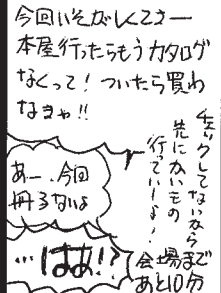 今回いそがしくてさー
本屋行ったらもうカタログ
なくって!ついたら買わ
なきゃ!!
チェックしてないから
先にかいもの
行っていーよ!
あー、今回
冊子ないよ
…はあ!?
会場まで
あと10分